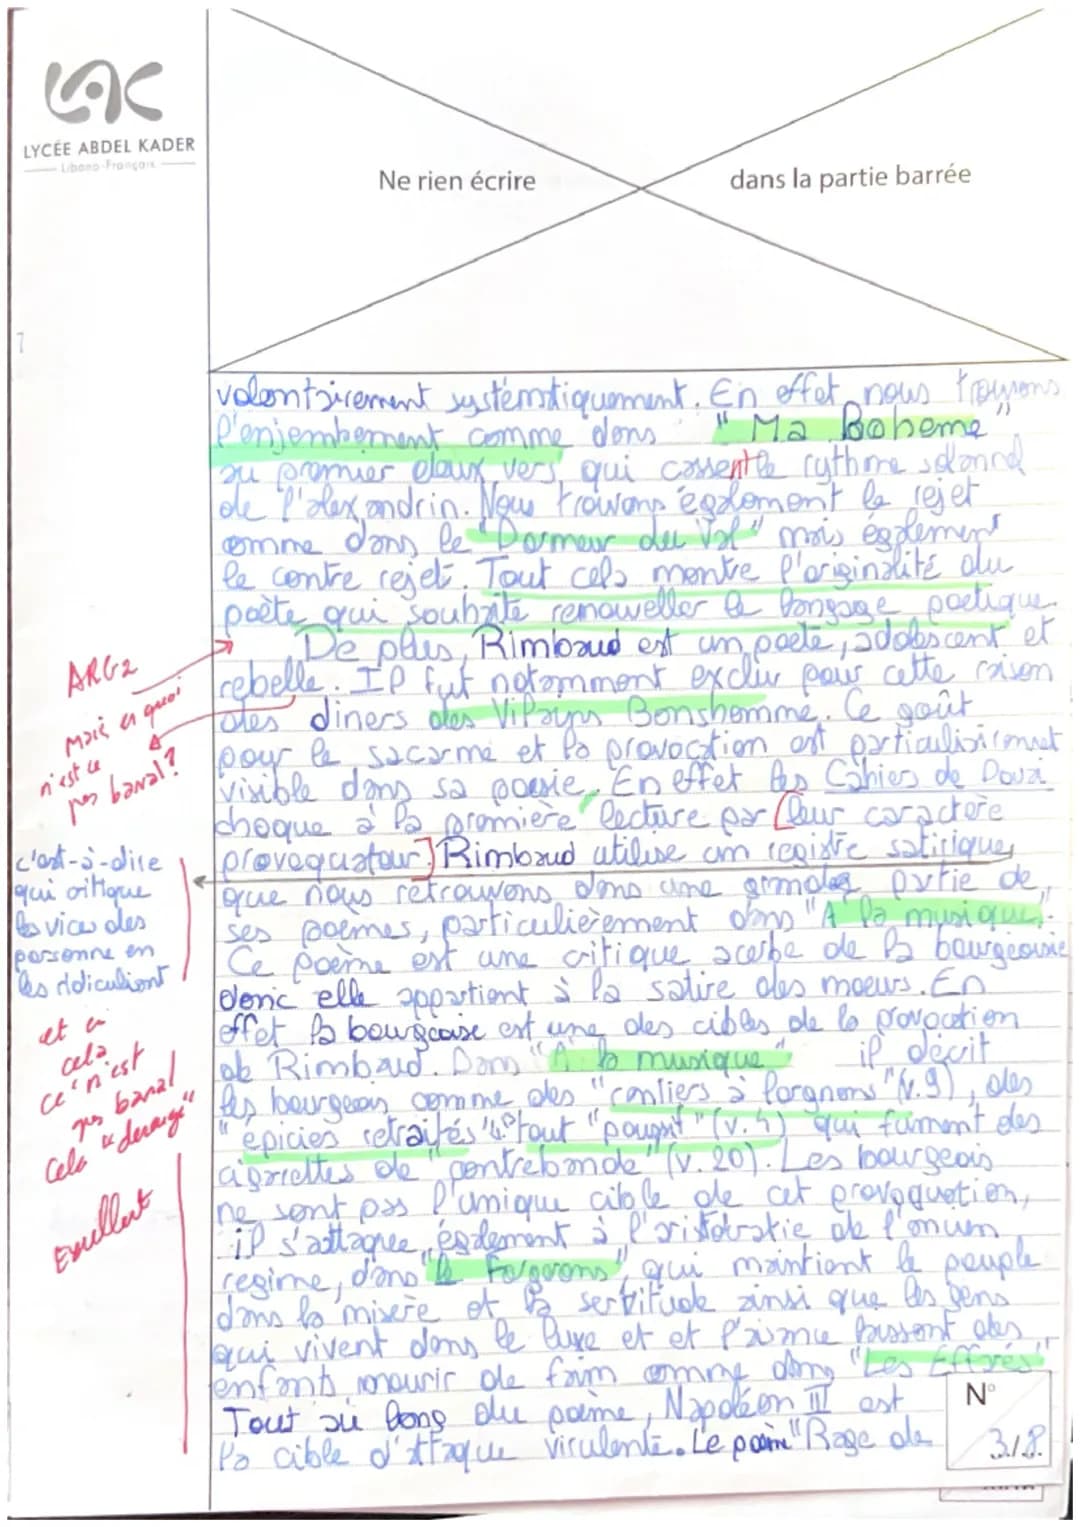 LYCÉE ABDEL KADER
Libano-Français
Ne rien écrire
dans la partie barrée
volontairement systématiquement. En effet nous trouvons
l'enjembement comme dans "Ma Boheme"
au premier deux vers qui cassent le rythme solonnel
de l'alexandrin. Nous trouvons également le rejet
comme dans le "Dormeur du Val" mais également
le contre rejet. Tout cela montre l'originalité du
poète qui souhaite renouveller le langage poetique.
De plus, Rimbaud est un poete, adolescent et
rebelle. Il fut notamment exclur pour cette raison
des diners des Vilayns Bonshomme. Ce goût
pour le sacarme et la provocation est
visible dans sa poesie. En effet les Cahies de Douai
choque à la première lecture par leur caractère
provoquateur. Rimbaud utilise un registre satirique,
que nous retrouvons dans une grande partie de
ses poèmes, particulièrement dans "A la musique".
Ce poème est une critique acerbe de la bourgeoisie
donc elle appartient à la satire des moeurs. En
effet la bourgeoise est une des cibles de la provocation
de Rimbaud. Dans "A la musique" il décrit
les bourgeois comme des "" (v.9), des
"épiciers retraités" tout "" (v.4) qui fument des
de "contrebande" (v.20). Les bourgeois
ne sont pas l'unique cible de cet provoquation,
il s'attaque également à l' de l'
regime, dans "le Forgerons", qui maintient le peuple
dans la misère et la servitude ainsi que les gens
qui vivent dans le luxe et et laissent des
enfants mourir de faim comme dans "Les Effrés"
Tout au long du poème, Napoléon III est
la cible d'attaque virulente. Le poème "Rage de
ARG2
Mais en quoi
n'est ce
pas banal?
c'est-à-dire
qui critique
les vices des
personne en
les ridiculisent
et en
cela
ce n'est
pas banal
Cela "derange"
Excellent
N°
3/8